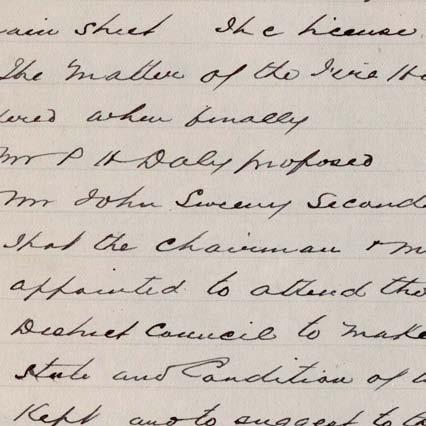 ain street The License
The Matter of the Fire H
ered when finally
Mr P H Daly proposed
Mr John Sweeny Seconde
That the Chairman & M
appointed to attend the
District Council to Make
State and Condition of
Kept and to suggest to